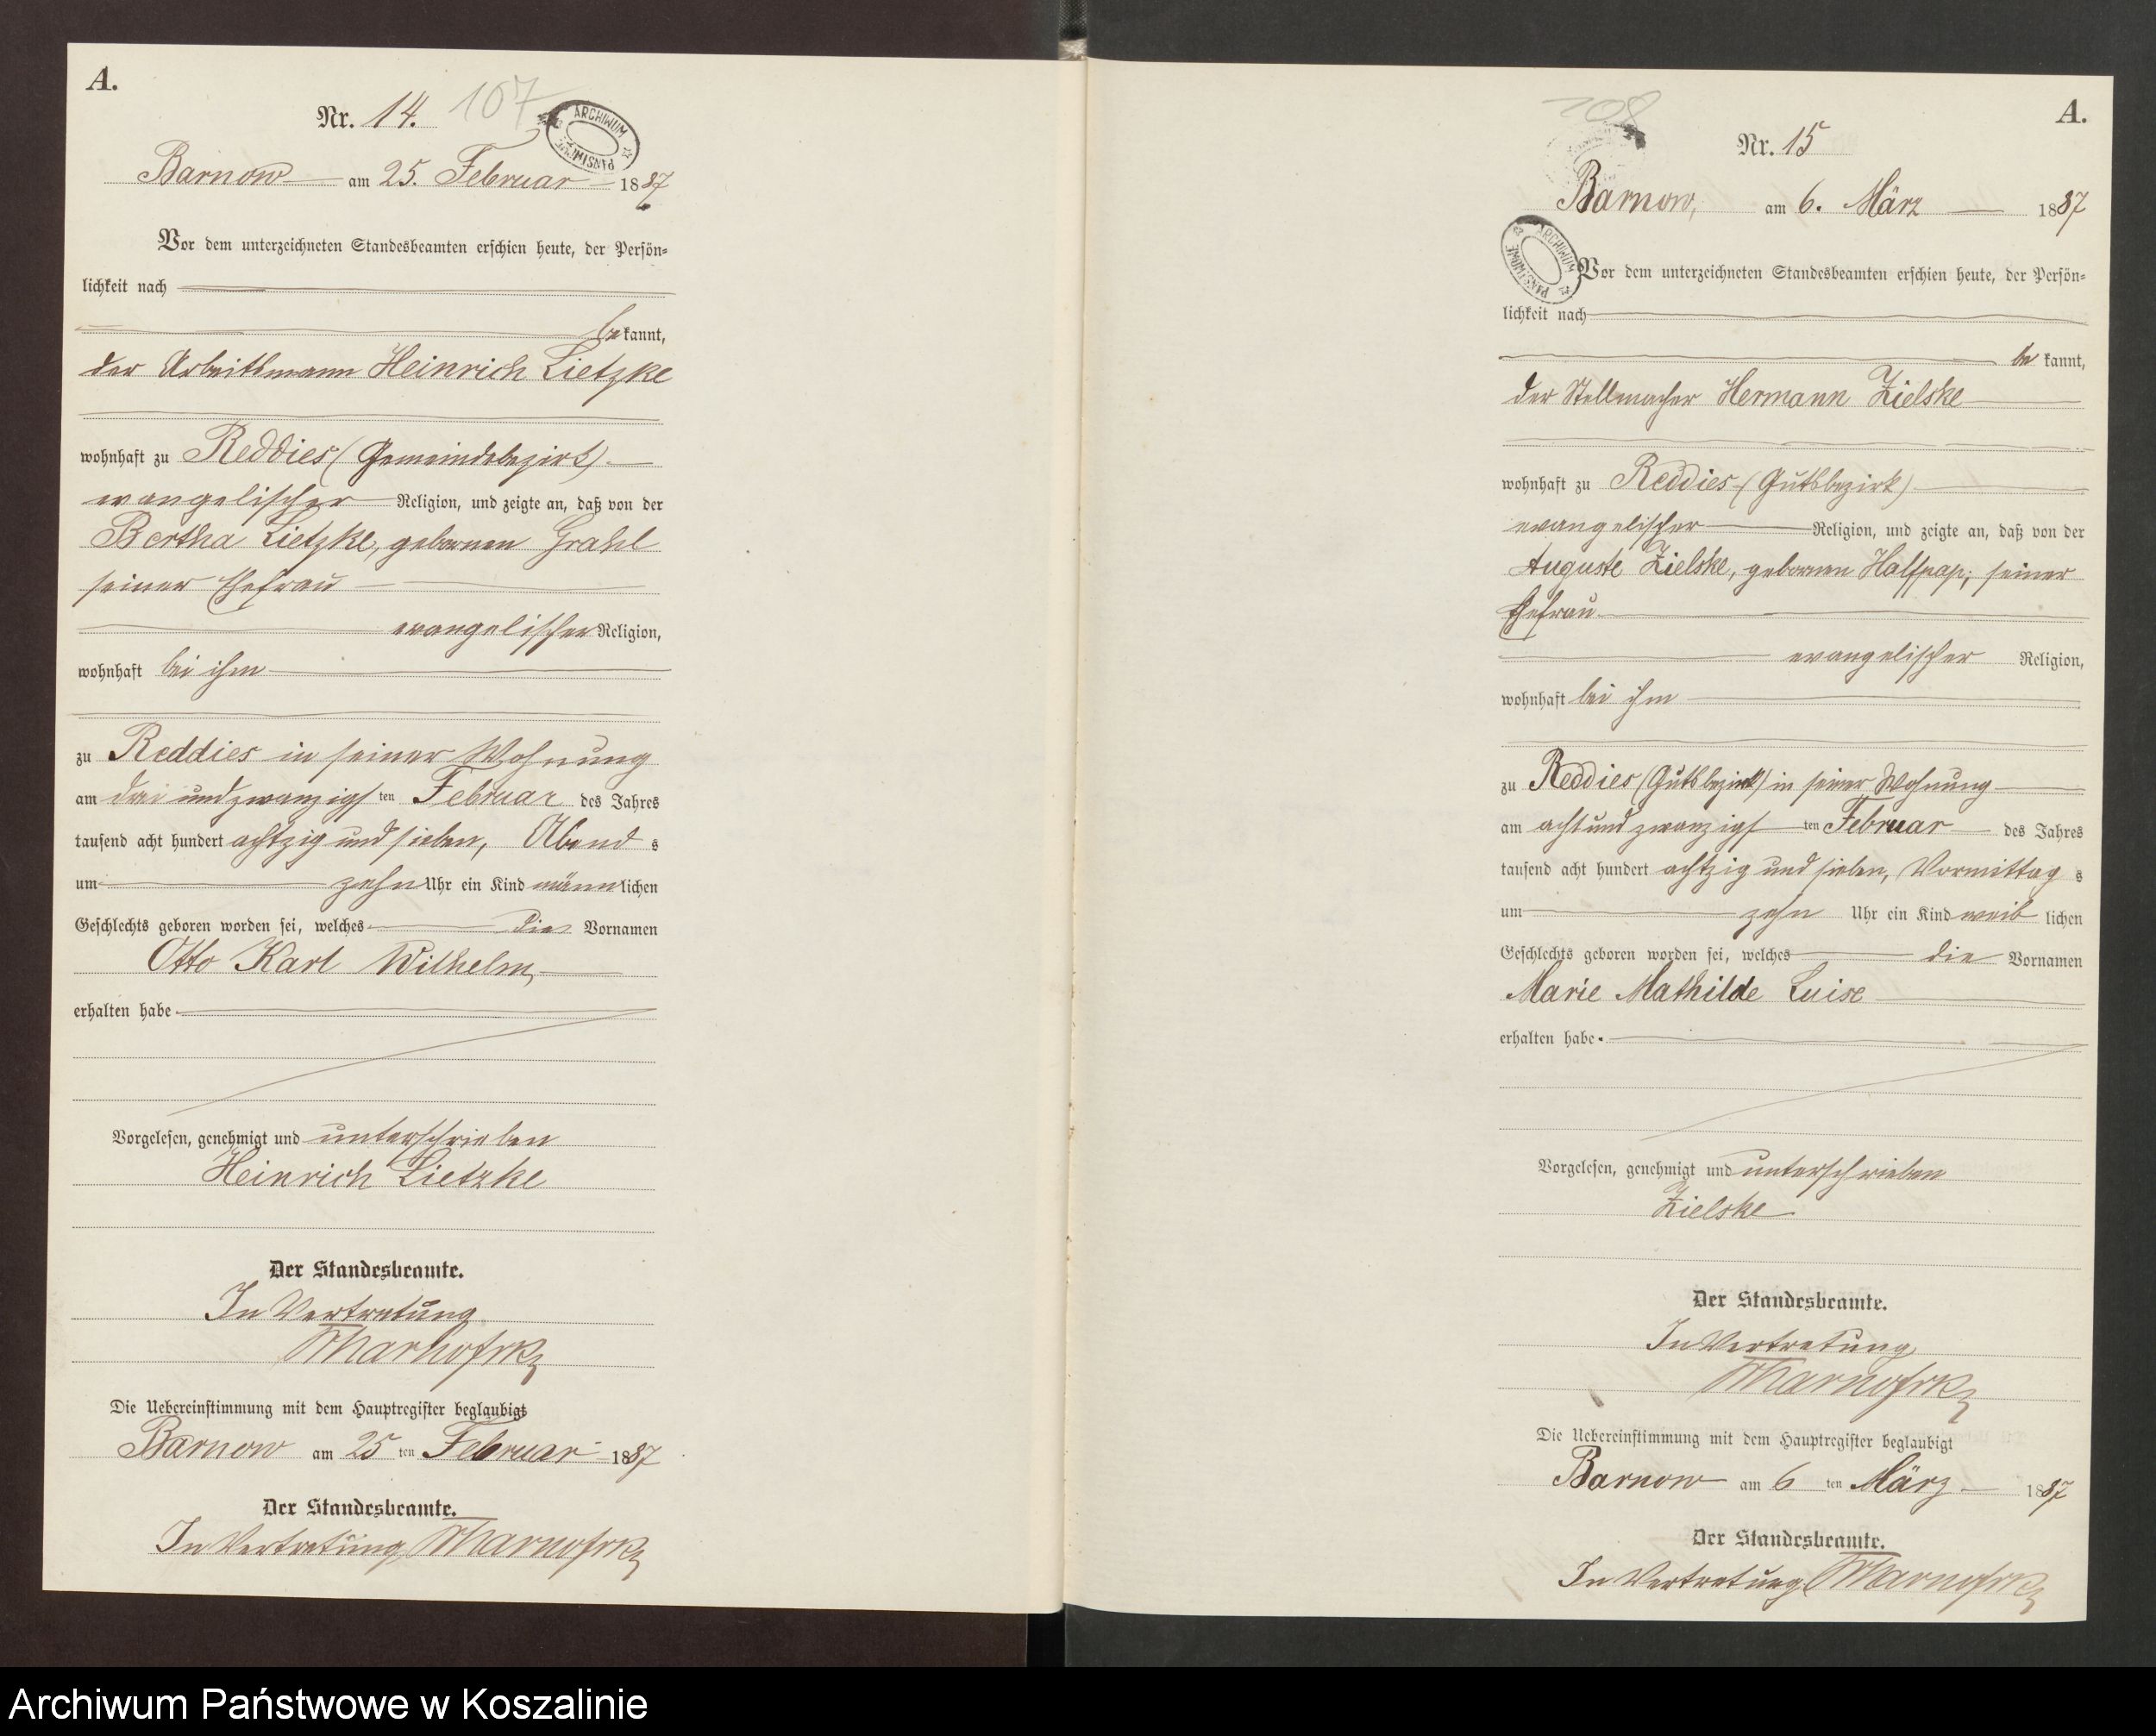 A.
Nr. 14.
107
ARCHIWUM PAŃSTWOWE
Barnow am 25. Februar 1887
Vor dem unterzeichneten Standesbeamten erschien heute, der Persön-
lichkeit nach
bekannt,
der Arbeitsmann Heinrich Lietzke
wohnhaft zu Reddies (Gemeindebezirk)
evangelischer Religion, und zeigte an, daß von der
Bertha Lietzke, geborenen Grahl
seiner Ehefrau
evangelischer Religion,
wohnhaft bei ihm
zu Reddies in seiner Wohnung
am drei und zwanzigsten Februar des Jahres
tausend acht hundert achtzig und sieben, Abends
um zehn Uhr ein Kind männlichen
Geschlechts geboren worden sei, welches die Vornamen
Otto Karl Wilhelm,
erhalten habe
Vorgelesen, genehmigt und unterschrieben
Heinrich Lietzke
Der Standesbeamte.
In Vertretung
Die Uebereinstimmung mit dem Hauptregister beglaubigt
Barnow am 25 ten Februar 1887
Der Standesbeamte.
In Vertretung
A.
108
Nr. 15
Barnow, am 6. März 1887
ARCHIWUM PAŃSTWOWE
Vor dem unterzeichneten Standesbeamten erschien heute, der Persön-
lichkeit nach
bekannt,
der Stellmacher Hermann Zielske
wohnhaft zu Reddies (Gutsbezirk)
evangelischer Religion, und zeigte an, daß von der
Auguste Zielske, geborenen Halfpap, seiner
Ehefrau
evangelischer Religion,
wohnhaft bei ihm
zu Reddies (Gutsbezirk) in seiner Wohnung
am acht und zwanzigsten Februar des Jahres
tausend acht hundert achtzig und sieben, Vormittags
um zehn Uhr ein Kind weiblichen
Geschlechts geboren worden sei, welches die Vornamen
Marie Mathilde Luise
erhalten habe.
Vorgelesen, genehmigt und unterschrieben
Zielske
Der Standesbeamte.
In Vertretung
Die Uebereinstimmung mit dem Hauptregister beglaubigt
Barnow am 6 ten März 1887
Der Standesbeamte.
In Vertretung
Archiwum Państwowe w Koszalinie